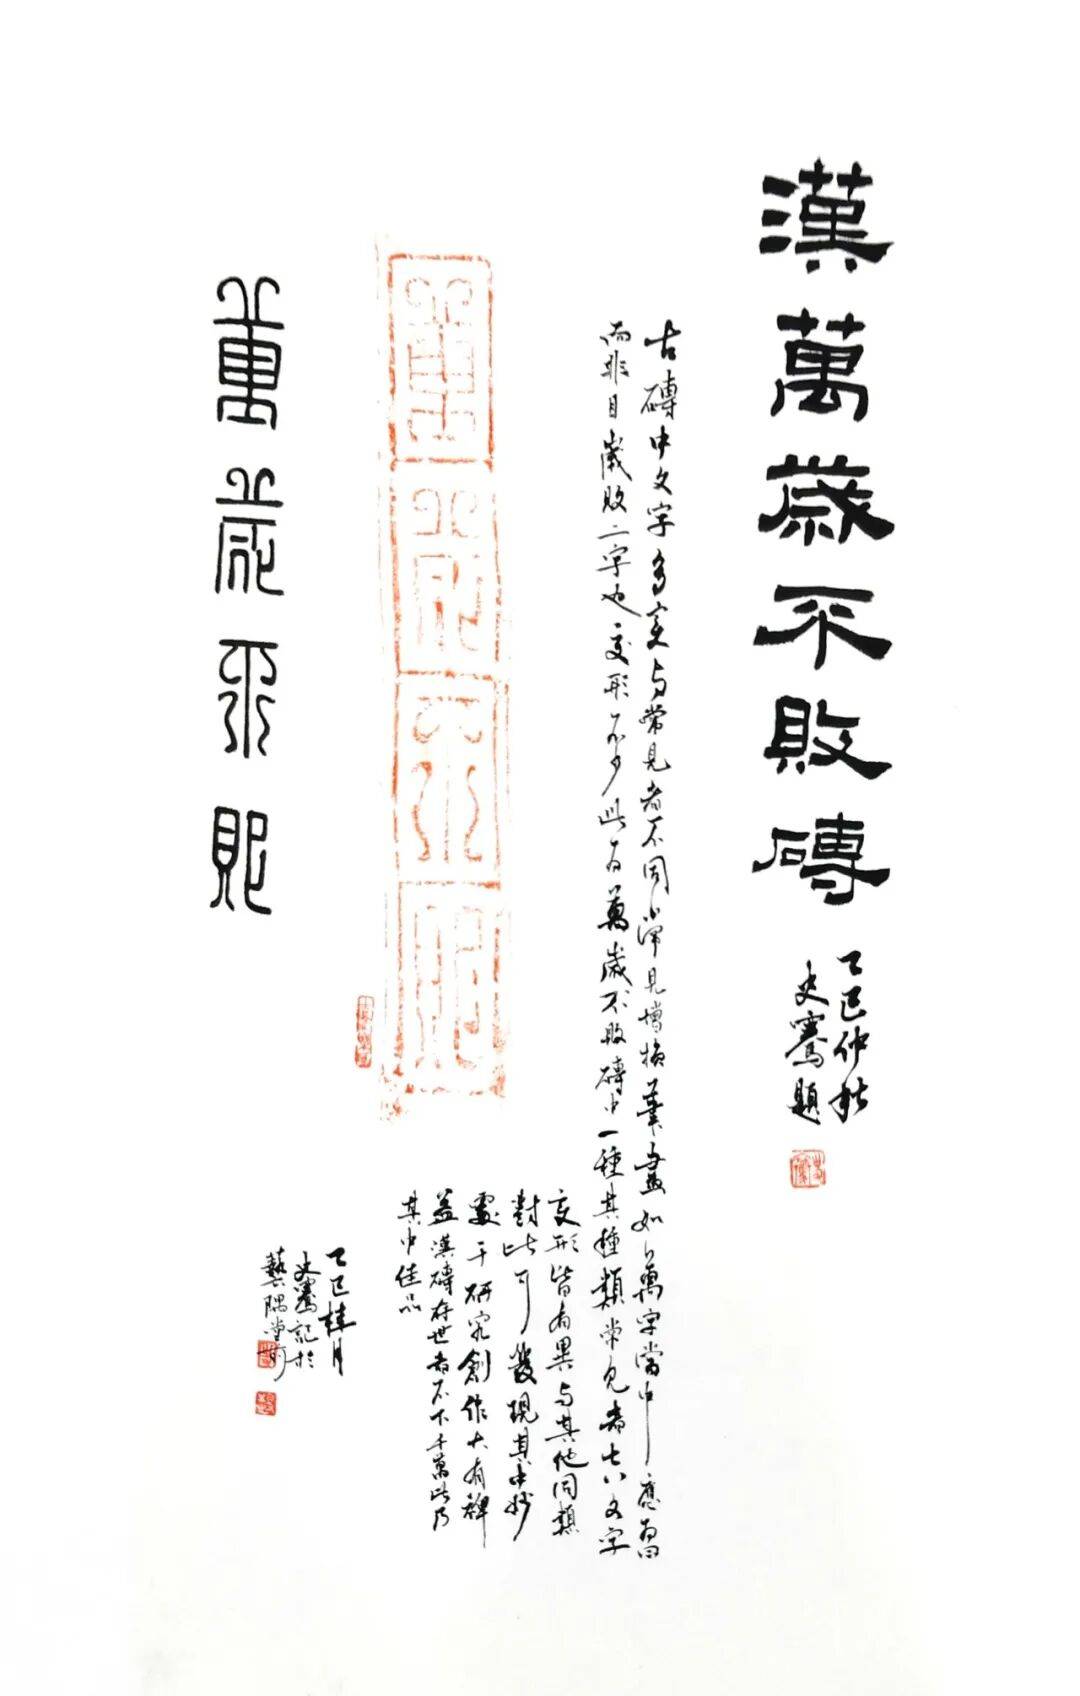 漢萬歲不敗磚
乙巳仲秋
史騫題
古磚中文字多變与常見者不同常見增損筆畫如萬字當中應爲田
而非目歲敗二字也變形不少此爲萬歲不敗磚中一種其種類常見者七八文字
變形皆有異与其他同類
對比可發現其中妙
處于研究創作大有裨
益漢磚存世者不下千萬此乃
其中佳品
萬歲不敗
萬歲不敗
乙巳桂月
史騫記於
藝隅堂